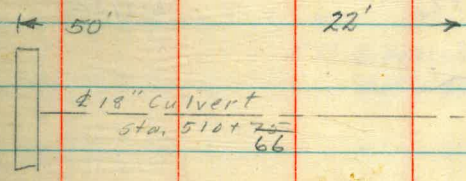 50' 22'
℄ 18" Culvert
sta. 510+75
66